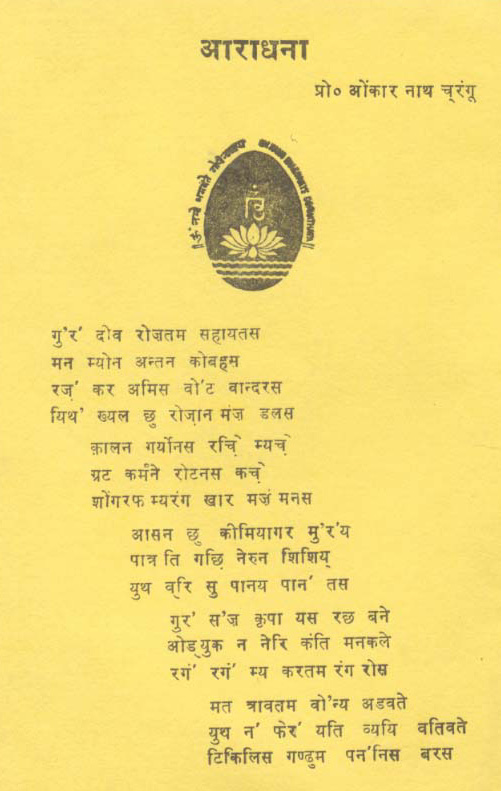 आराधना
प्रो० ओंकार नाथ च्रंगू
॥ ॐ नमो भगवते गोपीनाथाय
गु'र' दीव रोज़तम सहायतस
मन म्योन अन्तन कोबहस
रज़' कर अमिस वो'ट वान्दरस
यिथ' ख्यल छु रोज़ान मंज़ डलस
क़ालन गर्योनस रचि़ म्यच़े
ग्रट कर्मने रोटनस कच़े
शोंगरफ म्यरंग खार मजं मनस
आसन छु कीमियागर मु'र'य
पात्र ति गछि नेरुन शिशिय्
युथ व्रि सु पानय पान' तस
गुर' स'ज़ कृपा यस रछ बने
ओड्युक न नेरि कंति मनकले
रगं' रगं' म्य करतम रंग रोस
मत त्रावतम वो'न्य अडवते
युथ न' फेर' यति व्ययि वतिवते
टिकिलिस गण्डुम पन'निस बरस